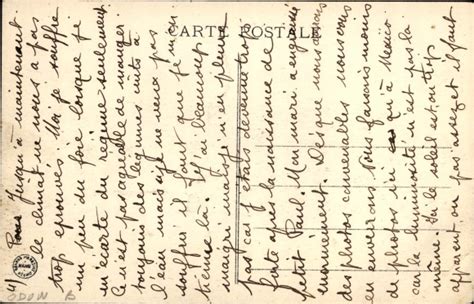 CARTE POSTALE
Jusqu'à maintenant
le climat ne nous a pas
trop éprouvés. Moi je souffre
un peu du foie lorsque je
m'écarte du régime seulement
Ce n'est pas agréable de manger
toujours des légumes cuits à
l'eau mais si je ne veux pas
souffrir il faut que je m'en
tienne là. J'ai beaucoup
maigri je n'en pleure
pas car j'étais devenue trop
forte après la naissance du
petit Paul. Mon mari a engraissé
énormément. Dès que nous aurons
des photos convenables nous vous
en enverrons. Nous faisons moins
de photos ici qu'à Mexico
car la luminosité n'est pas la
même. Ou le soleil est trop
apparent ou pas assez et il faut
41
ODON B